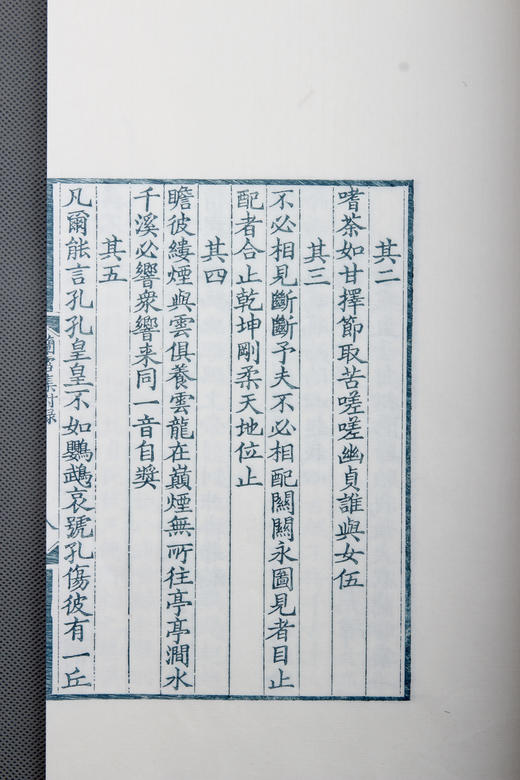 其二
嗜荼如甘擇節取苦嗟嗟幽貞誰與女伍
其三
不必相見斷斷予夫不必相配關關永圖見者目止
配者合止乾坤剛柔天地位止
其四
瞻彼縷煙與雲俱養雲龍在巔煙無所往亭亭澗水
千溪必響衆響来同一音自奬
其五
凡爾能言孔孔皇皇不如鸚鵡哀號孔傷彼有一丘
集附録
八